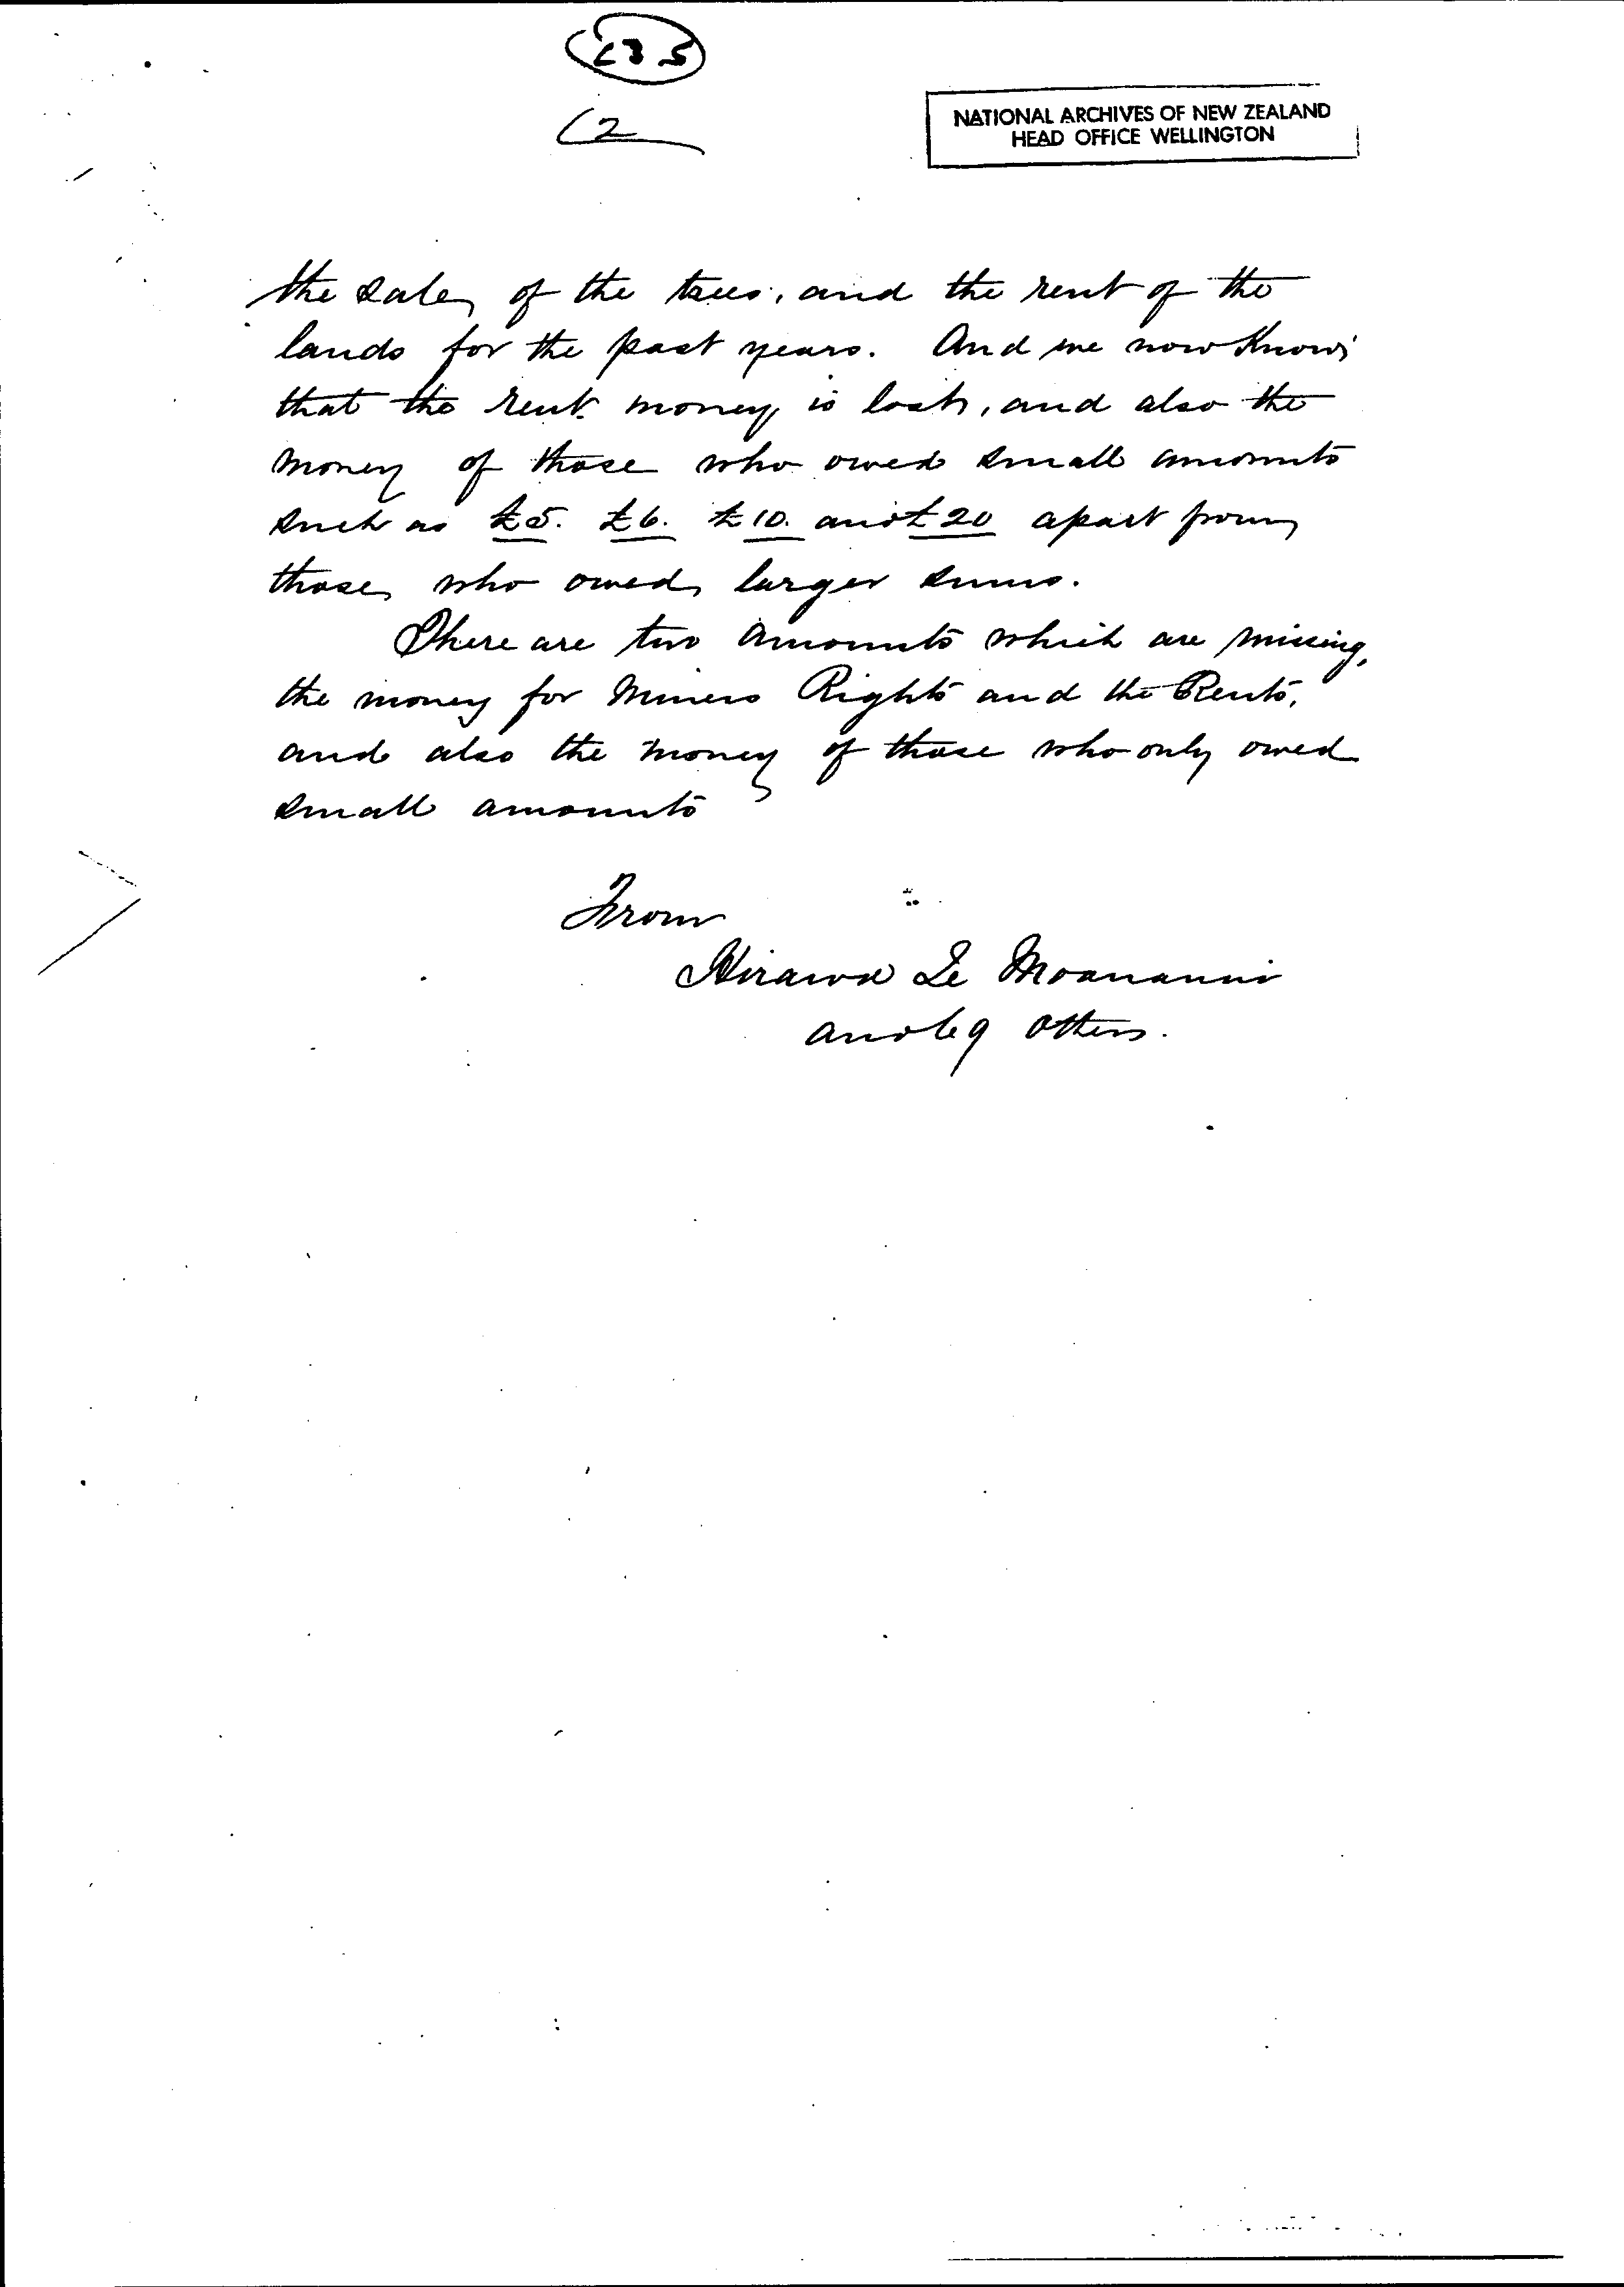 235
(2
NATIONAL ARCHIVES OF NEW ZEALAND
HEAD OFFICE WELLINGTON
the sale of the trees, and the rent of the
lands for the past years. And we now know
that the rent money is lost, and also the
money of those who owed small amounts
such as £5. £6. £10. and £20 apart from
those who owed larger sums.
There are two amounts which are missing,
the money for Miners Rights and the Rents,
and also the money of those who only owed
small amounts
From
Hirawa Te Moananui
and 69 others.